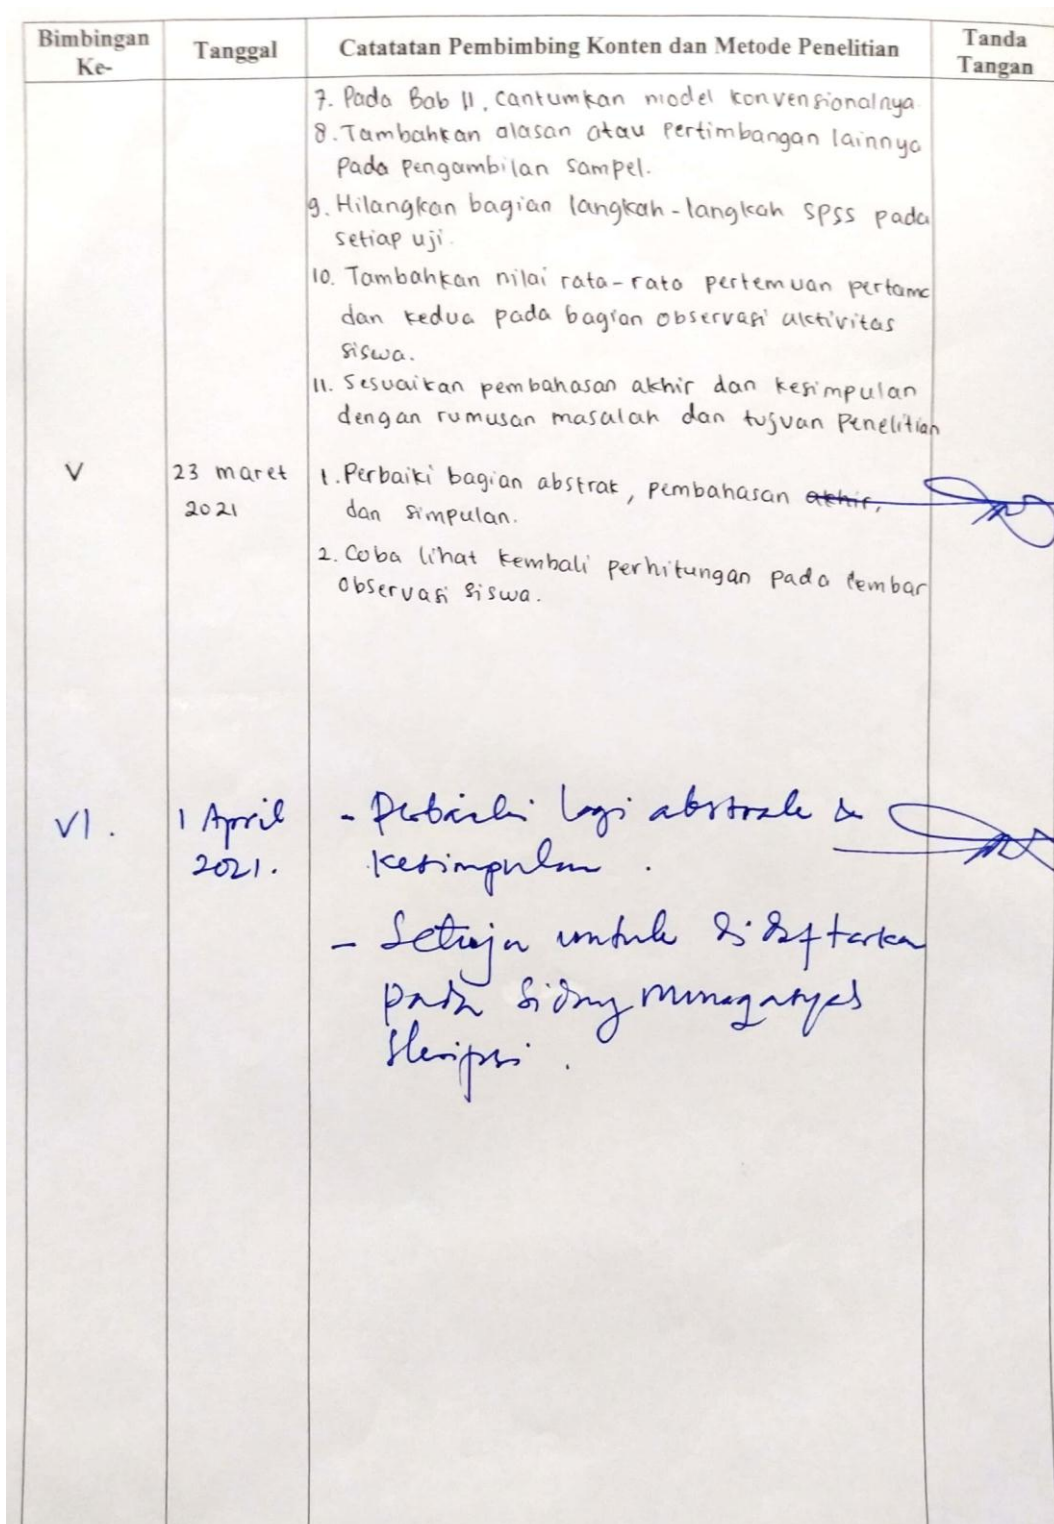 Bimbingan Ke-
Tanggal
Catatatan Pembimbing Konten dan Metode Penelitian
Tanda Tangan
7. Pada Bab II, cantumkan model konvensionalnya.
8. Tambahkan alasan atau pertimbangan lainnya
pada pengambilan sampel.
9. Hilangkan bagian langkah-langkah SPSS pada
setiap uji.
10. Tambahkan nilai rata-rata pertemuan pertama
dan kedua pada bagian observasi aktivitas
siswa.
11. Sesuaikan pembahasan akhir dan kesimpulan
dengan rumusan masalah dan tujuan Penelitian
V
23 maret
2021
1. Perbaiki bagian abstrak, pembahasan akhir,
dan simpulan.
2. Coba lihat kembali perhitungan pada lembar
observasi siswa.
VI.
1 April
2021.
- Perbaiki lagi abstrak &
kesimpulan.
- Setuju untuk didaftarkan
pada Sidang munaqasyah
skripsi.